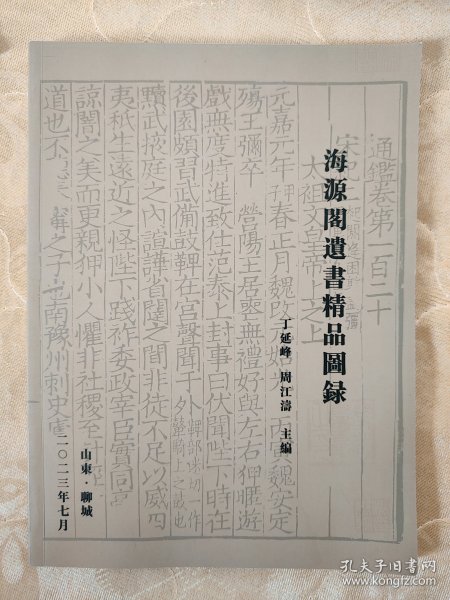 海源閣遺書精品圖録
丁延峰 周江濤 主編
山東·聊城
二〇二三年七月
通鑑卷第一百二十
宋紀二
太祖文皇帝上之上
元嘉元年春正月魏改
丙寅魏安定
殤王彌卒 營陽王居喪無禮好與左右狎暱遊
戲無度特進致仕范泰上封事曰伏聞陛下時在
後園頗習武備鼓鞞在宮聲聞于外
黷武掖庭之内諠譁省闥之間非徒不足以威四
夷秖生遠近之怪陛下踐祚委政宰臣實同
諒闇之美而更親狎小人懼非社稷至
道也不
之子也南豫州刺史
孔夫子旧书网
www.kongfz.com